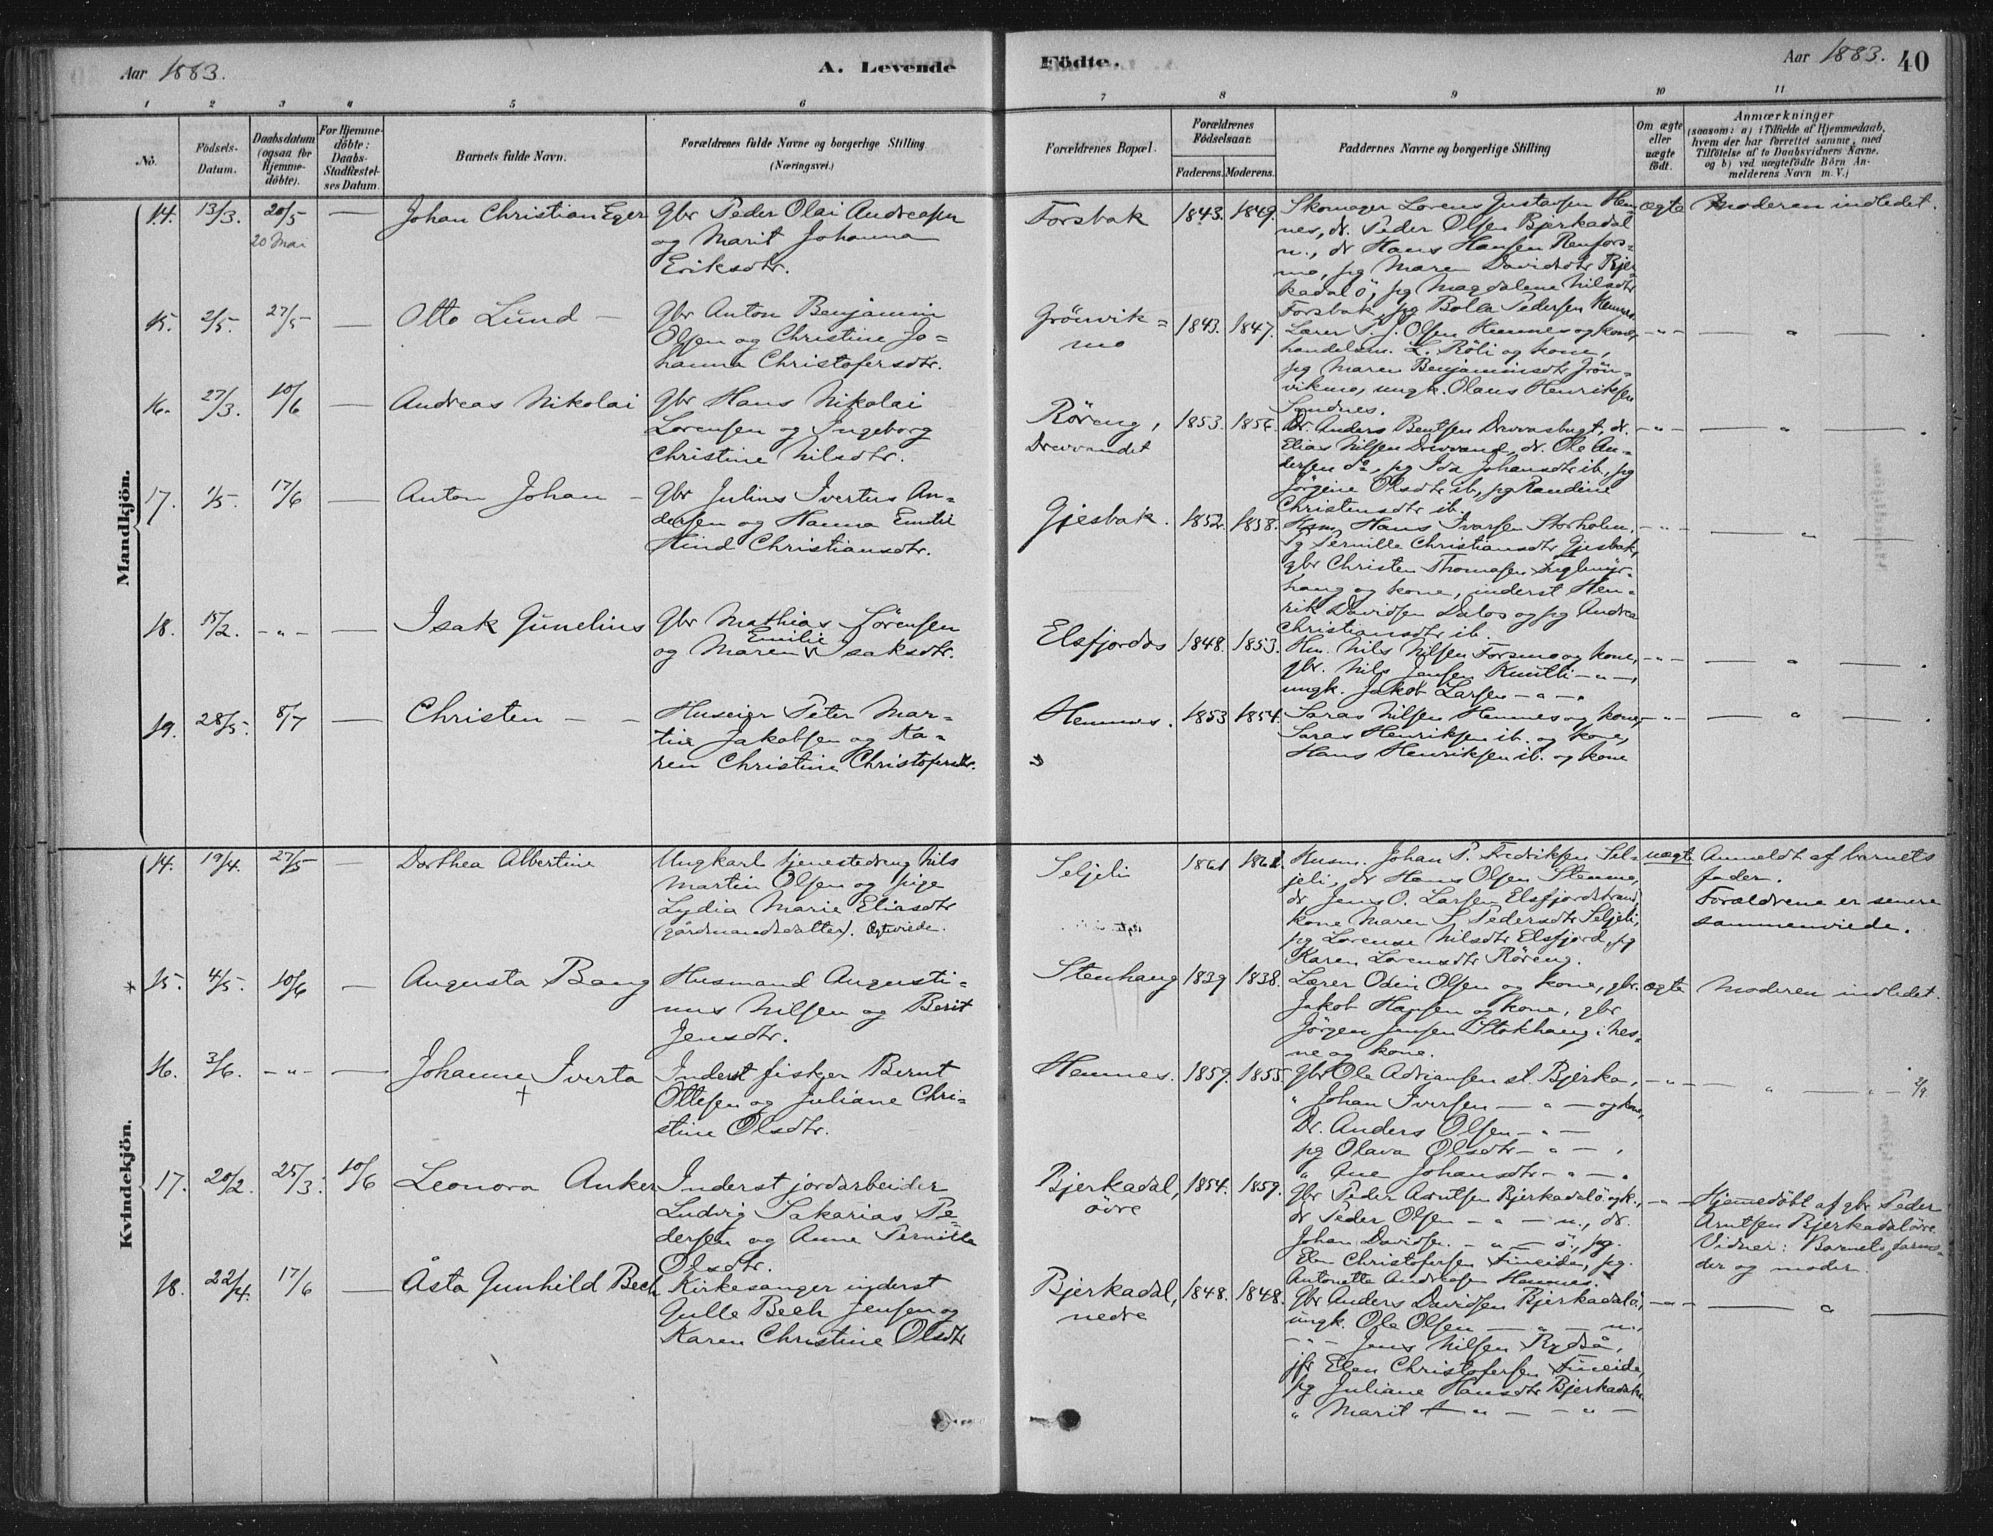 Aar 1883.
A. Levende
Födte.
Aar 1883. 40
1 2 3 4 5 6 7 8 9 10 11
No.
Födsels-
Datum.
Daabsdatum
(ogsaa for
Hjemme-
döbte).
For Hjemme-
döbte:
Daabs-
Stadfæstel-
ses Datum.
Barnets fulde Navn.
Forældrenes fulde Navne og borgerlige Stilling
(Næringsvei.)
Forældrenes Bopæl.
Forældrenes
Födselsaar.
Faderens. Moderens.
Faddernes Navne og borgerlige Stilling
Om ægte
eller
uægte
födt.
Anmærkninger
(saasom: a) i Tilfælde af Hjemmedaab,
hvem der har forrettet samme, med
Tilföielse af to Daabsvidners Navne,
og b) ved uægtefödte Börn An-
melderens Navn m. V.)
Mandkjön.
14. 13/3. 20/5 — Johan Christian Eger
20 Mai
Gbr Peder Olai Andreasen
og Marit Johanna
Eriksdtr.
Forsbak 1843. 1849.
Skomager Lorens Gustavsen Hem-
nes, dr. Peder Olsen Bjerkadal
n., dr Hans Hansen Renfors-
mo, pg Maren Davidsdtr Bjer-
kadal ö, pg Magdalene Nilsdtr
Forsbak, pg Bolla Pedersen Hemnes
ægte Moderen indledet.
15. 2/5. 27/5 — Otto Lund —
Gbr Anton Benjamin
Olsen og Christine Jo-
hanna Christofersdtr.
Grönvik-
mo
1843. 1847.
Lærer P. J. Olsen Hemnes og kone,
handelsm. L. Röli og kone,
pg Maren Benjaminsdtr Grön-
vikmo, ungk. Olaus Henriksen
Sundnes.
-"- — " — .
16. 27/3. 10/6 — Andreas Nikolai
Gbr Hans Nikolai
Lorensen og Ingeborg
Christine Nilsdtr.
Röreng,
Drevvandet
1853. 1856.
Dr. Anders Bentsen Drevvasbugt, dr.
Elias Nilsen Drevvand, dr. Ole An-
dersen do, pg Ida Johansdtr ib., pg
Jörgine Olsdtr ib., pg Randine
Christensdtr ib.
-"- — " — .
17. 1/5. 17/6 — Anton Johan —
Gbr Julius Ivertus An-
dersen og Hanna Emilie
Hind Christiansdtr.
Gjesbak. 1852. 1858.
Hsm. Hans Ivarsen Storholm.
Pg Pernille Christiansdtr Gjesbak,
gbr Christen Thomasen
haug og kone, inderst Hen-
rik Davidsen Dalos og pg Andrea
Christiansdtr ib.
-"- — " —
18. 15/2. -"- — Isak Gunelius
Gbr Mathias Sörensen
og Maren Emilie Isaksdtr.
Elsfjordos 1848. 1853.
Hm. Nils Nilsen Forsmo og kone,
gbr. Nils Jensen Kuntli -"-,
ungk. Jakob Larsen -"-.
-"- — " — .
19. 28/5. 8/7 — Christen — —
Huseier Peter Mar-
tin Jakobsen og Ka-
ren Christine Christofersdtr.
Hemnes. 1853 1854.
Saras Nilsen Hemnes og kone,
Saras Henriksen ib. og kone,
Hans Henriksen ib. og kone
-"- — " — .
Kvindekjön.
14. 19/4. 27/5 — Dorthea Albertine
Ungkarl tjenestedreng Nils
Martin Olsen og pige
Lydia Marie Eliasdtr
(gårdmandsdatter). Egteviede.
Seljeli 1861 1861.
Husm. Johan P. Fredriksen Sel-
jeli, dr Hans Olsen Stemme,
dr Jens O. Larsen Elsfjordstrand,
kone Maren S. Pedersdtr Seljeli,
pg Lorense Nilsdtr Elsfjord, pg
Karen Lorensdtr Röreng.
uægte Anmeldt af barnets
fader.
Forældrene er senere
sammenviede.
* 15. 4/5. 10/6 — Augusta Bang
Husmand Augusti-
nus Nilsen og Berit
Jensdtr.
Stenhaug 1839 1838.
Lærer Odin Olsen og kone, gbr.
Jakob Hansen og kone, gbr
Jörgen Jensen Stokhaug i Nes-
ne og kone.
ægte Moderen indledet.
16. 3/6. -"- — Johanne Iverta
+
Inderst fisker Bernt
Ottesen og Juliane Chri-
stine Olsdtr.
Hemnes. 1859. 1855.
Gbr Ole Adriansen st. Bjerka,
" Johan Iversen — " — og kone,
Dr. Anders Olsen — " —
pg Olava Olsdtr — " — .
" Ane Johansdtr — " — .
-"- — " — 2/9.
17. 20/2. 25/3. 10/6 Leonora Anker
Inderst jordarbeider
Ludvig Sakarias Pe-
dersen og Anne Pernille
Olsdtr.
Bjerkadal,
övre
1854. 1859.
Gbr Peder Arntsen Bjerkadal ö og k.,
dr Peder Olsen — " — n., dr.
Johan Davidsen — " — ö., pg.
Elen Christofersen Fineide, pg.
Antonette Andreasen Hemnes.
-"- Hjemmedöbt af gbr Peder
Arntsen Bjerkadal övre.
Vidner: Barnets farmo-
der og moder.
18. 22/4. 17/6 — Åsta Gunhild Bech
Kirkesanger inderst
Gulle Bech Jensen og
Karen Christine Olsdtr
Bjerkadal,
nedre
1848. 1848.
Gbr Anders Davidsen Bjerkadal ö,
ungk. Ole Olsen — " — n.,
-"- Jens Nilsen Rydså,
jfr Elen Christofersen Fineide,
pg Juliane Hansdtr Bjerkadal n.
" Marit A — " — " —
-"- — " —